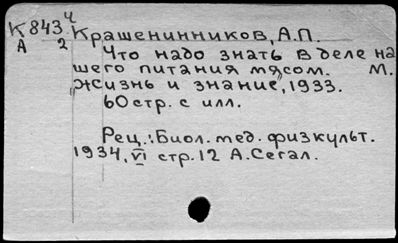 К843 ч Крашенинников, А.П.
А 2
Что надо знать в деле на
шего питания мясом. М.
"Жизнь и знание", 1933.
60 стр. с илл.
Рец.: Биол. мед. физкульт.
1934, VI стр. 12 А. Сегал.